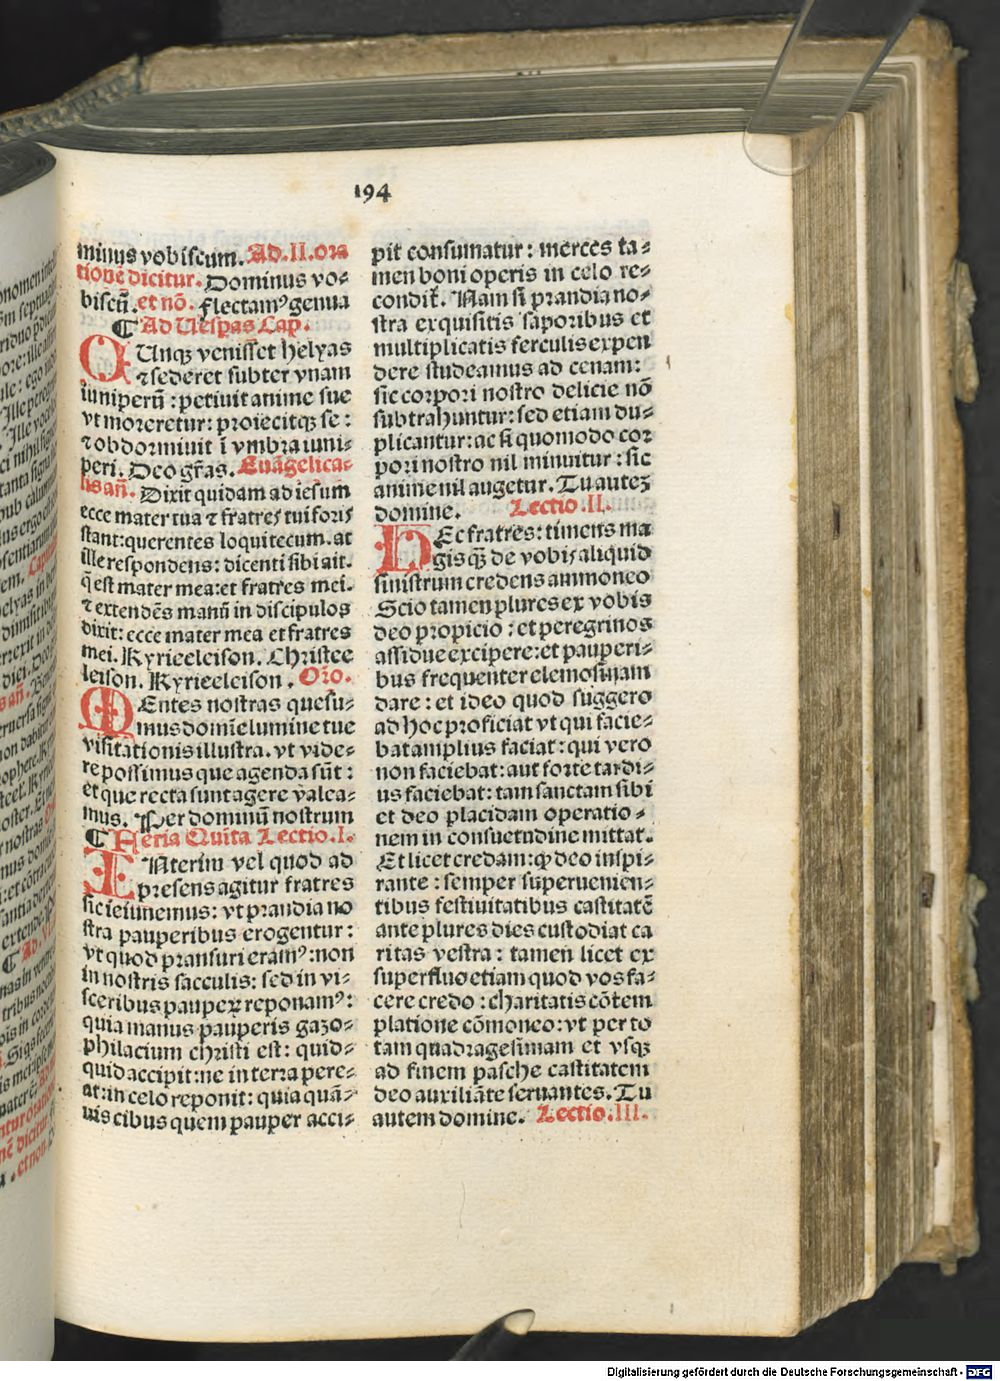 194
minus vobiscum. Ad .II. ora
tionē dicitur. Dominus vo⸗
biscū. et nō. flectamꝰ genua
¶ Ad Vespas Cap.
CUnqꝫ venisset helyas
⁊ sederet subter vnam
iuniperū : petiuit anime sue
vt moreretur: proiecitqꝫ se :
⁊ obdormiuit ī vmbra iuni⸗
peri. Deo gr̄as. Euāgelica⸗
lis an̄. Dixit quidam ad iesum
ecce mater tua ⁊ fratres tui foris
stant: querentes loqui tecum. at
ille respondens: dicenti sibi ait.
q̄ est mater mea: et fratres mei.
⁊ extendēs manū in discipulos
dixit: ecce mater mea et fratres
mei. Kyrieeleison. Christee
leison. Kyrieeleison . Or̄o.
MEntes nostras quesu⸗
mus domīe lumine tue
visitationis illustra. vt vide⸗
re possimus que agenda sūt :
et que recta sunt agere valea⸗
mus. Per dominū nostrum
¶ Feria Quīta Lectio .I.
INterim vel quod ad
presens agitur fratres
sic ieiunemus: vt prandia no
stra pauperibus erogentur :
vt quod pransuri eramꝰ: non
in nostris sacculis: sed in vi⸗
sceribus pauperꝝ reponamꝰ:
quia manus pauperis gazo⸗
philacium christi est: quid⸗
quid accipit: ne in terra pere⸗
at: in celo reponit: quia quā⸗
uis cibus quem pauper acci⸗
pit consumatur : merces ta⸗
men boni operis in celo re⸗
condit᷑. Nam si prandia no⸗
stra exquisitis saporibus et
multiplicatis ferculis expen
dere studeamus ad cenam:
sic corpori nostro delicie nō
subtrahuntur: sed etiam du⸗
plicantur: ac si quomodo cor
pori nostro nil minuitur : sic
anime nil augetur. Tu auteꝫ
domine. Lectio .II.
HEc fratres: timens ma
gis qꝫ de vobis aliquid
sinistrum credens ammoneo
Scio tamen plures ex vobis
deo propicio : et peregrinos
assidue excipere: et pauperi⸗
bus frequenter elemosinam
dare : et ideo quod suggero
ad hoc proficiat vt qui facie⸗
bat amplius faciat: qui vero
non faciebat: aut forte tardi⸗
us faciebat: tam sanctam sibi
et deo placidam operatio⸗
nem in consuetudine mittat.
Et licet credam: ꝙ deo inspi⸗
rante : semper superuenien⸗
tibus festiuitatibus castitatē
ante plures dies custodiat ca
ritas vestra : tamen licet ex
superfluo etiam quod vos fa⸗
cere credo : charitatis cōtem
platione cōmoneo: vt per to
tam quadragesimam et vsqꝫ
ad finem pasche castitatem
deo auxiliāte seruantes. Tu
autem domine. Lectio .III.
Digitalisierung gefördert durch die Deutsche Forschungsgemeinschaft - DFG